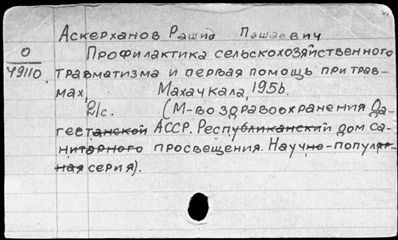 Аскерханов Рашид Пашаевич
О
49110.
Профилактика сельскохозяйственного
травматизма и первая помощь при трав-
мах. Махачкала, 1956.
21с. (М-во здравоохранения Да-
гестанской АССР. Республиканский дом са-
нитарного просвещения. Научно-популяр-
ная серия).